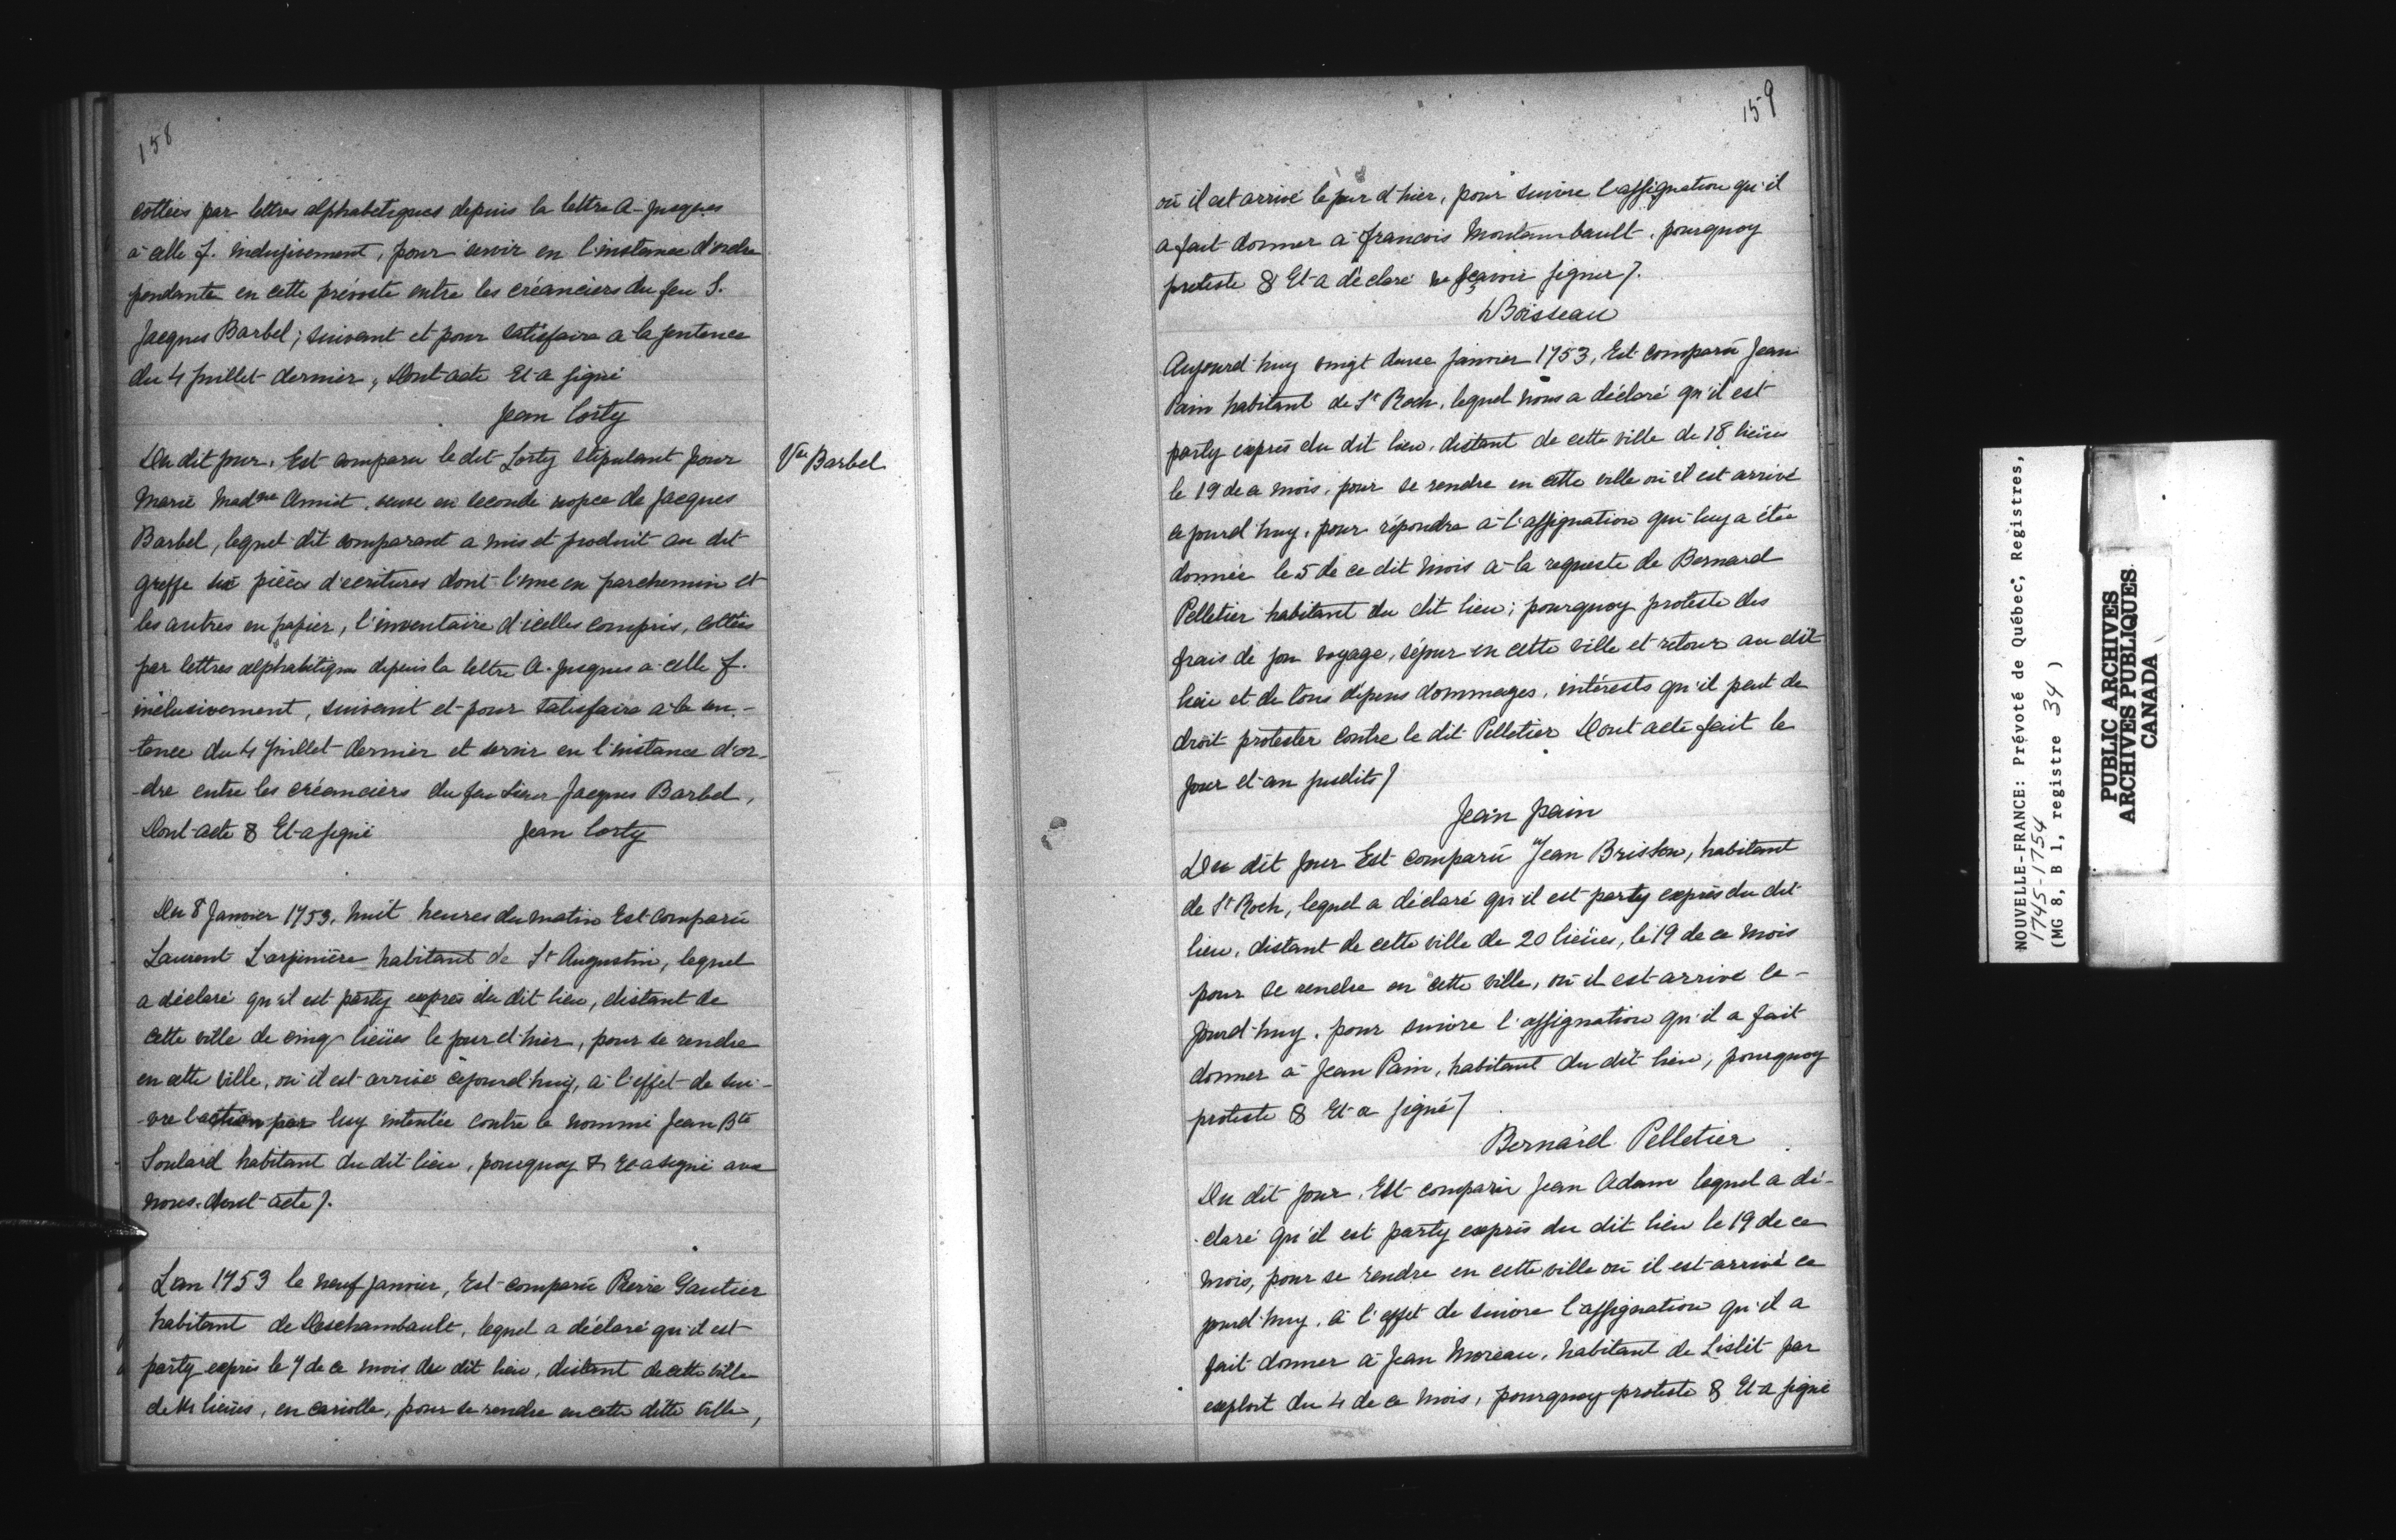 158
cottées par lettres alphabetiques depuis la lettre A. jusques
à celle f. inclusivement, pour servir en l'instance d'ordre
pendante en cette prévosté entre les créanciers du feu S.
Jacques Barbel; suivant et pour satisfaire a la sentence
du 4 Juillet dernier, Dont acte Et a signé
Jean Corty
Du dit jour, Est comparu le dit Corty stipulant pour
Vve Barbel
Marie Madne Amiot, veuve en seconde nopce de Jacques
Barbel, lequel dit comparant a mis et produit au dit
greffe six pièces d'ecritures dont l'une en parchemin et
les autres en papier, l'inventaire d'icelles compris, cottées
par lettres alphabétiques depuis la lettre A. jusques a celle f.
inclusivement, suivant et pour satisfaire a la sen-
tence du 4 Juillet dernier et servir en l'instance d'or-
dre entre les créanciers du feu Sieur Jacques Barbel,
Dont acte & Et a signé Jean Corty
Du 8 Janvier 1753, huit heures du matin Est comparu
Laurent habitant de St Augustin, lequel
a déclaré qu'il est party exprès du dit lieu, distant de
cette ville de cinq lieües le jour d'hier, pour se rendre
en cette ville, où il est arrivé cejourd'huy, à l'effet de sui-
vre l'action par luy intentée contre le nommé Jean Bte
Soulard habitant du dit lieu, pourquoy & Et a signé avec
nous. dont acte /.
L'an 1753 le neuf janvier, Est comparu Pierre Gautier
habitant de Deschambault, lequel a déclaré qu'il est
party exprès le 7 de ce mois du dit lieu, distant de cette ville
de lieües, en cariolle, pour se rendre en cette ditte ville,
159
où il est arrivé le jour d'hier, pour suivre l'assignation qu'il
a fait donner à francois Montambault, pourquoy
proteste & Et a déclaré ne sçavoir signer /.
Boisseau
Aujourd'huy vingt deux janvier 1753, Est comparu Jean
Pain habitant de St Roch, lequel nous a déclaré qu'il est
party exprès du dit lieu, distant de cette ville de 18 lieües
le 19 de ce mois, pour se rendre en cette ville où il est arrivé
cejourd'huy, pour répondre à l'assignation qui luy a étée
donnée le 5 de ce dit mois à la requeste de Bernard
Pelletier habitant du dit lieu; pourquoy proteste des
frais de son voyage, séjour en cette ville et retour au dit
lieu et de tous dépens dommages, intérests qu'il peut de
droit protester contre le dit Pelletier Dont acte fait le
jour et an susdits /
Jean pain
Du dit jour Est comparu Jean Brisson, habitant
de St Roch, lequel a déclaré qu'il est party exprès du dit
lieu, distant de cette ville de 20 lieües, le 19 de ce mois
pour se rendre en cette ville, où il est arrivé ce-
jourd'huy, pour suivre l'assignation qu'il a fait
donner à Jean Pain, habitant du dit lieu, pourquoy
proteste & Et a signé /
Bernard Pelletier
Du dit jour, Est comparu Jean Adam lequel a dé-
claré qu'il est party exprès du dit lieu le 19 de ce
mois, pour se rendre en cette ville où il est arrivé ce
jourd'huy, à l'effet de suivre l'assignation qu'il a
fait donner à Jean Moreau, habitant de Lislet par
exploit du 4 de ce mois, pourquoy proteste & Et a signé
NOUVELLE-FRANCE: Prévoté de Québec, Registres,
1745-1754
(MG 8, B 1, registre 34)
PUBLIC ARCHIVES
ARCHIVES PUBLIQUES
CANADA